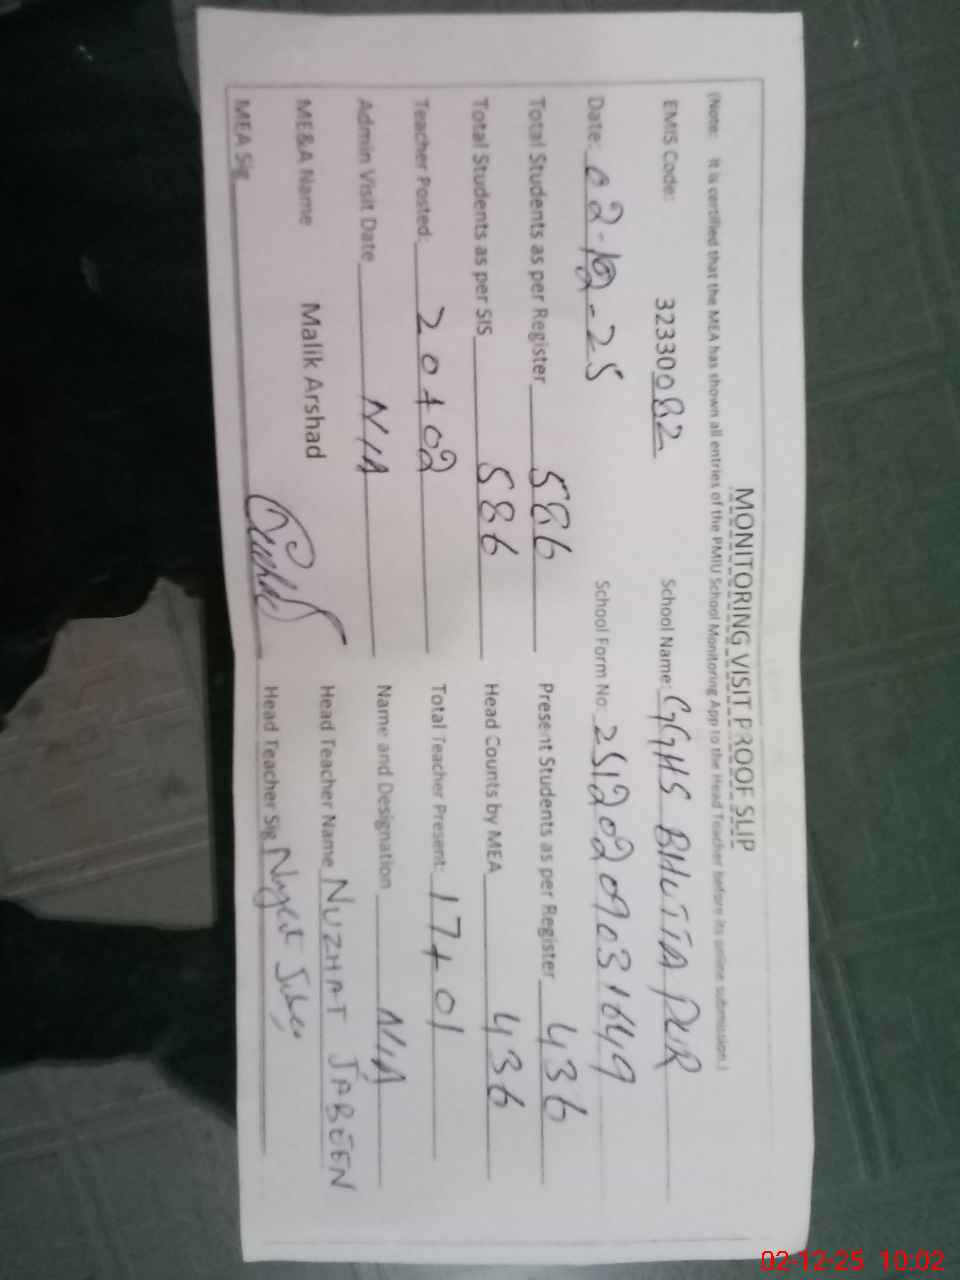 MONITORING VISIT PROOF SLIP
(Note: It is certified that the MEA has shown all entries of the PMIU School Monitoring App to the Head Teacher before its online submission.)
EMIS Code: 32330082 School Name: GGHS BHUTTA PUR
Date: 02-12-25 School Form No. 25120209031649
Total Students as per Register 586 Present Students as per Register 436
Total Students as per SIS 586 Head Counts by MEA 436
Teacher Posted: 20+02 Total Teacher Present: 17+01
Admin Visit Date N/A Name and Designation N/A
ME&A Name Malik Arshad Head Teacher Name NUZHAT JABEEN
MEA Sig Head Teacher Sig
02-12-25 10:02